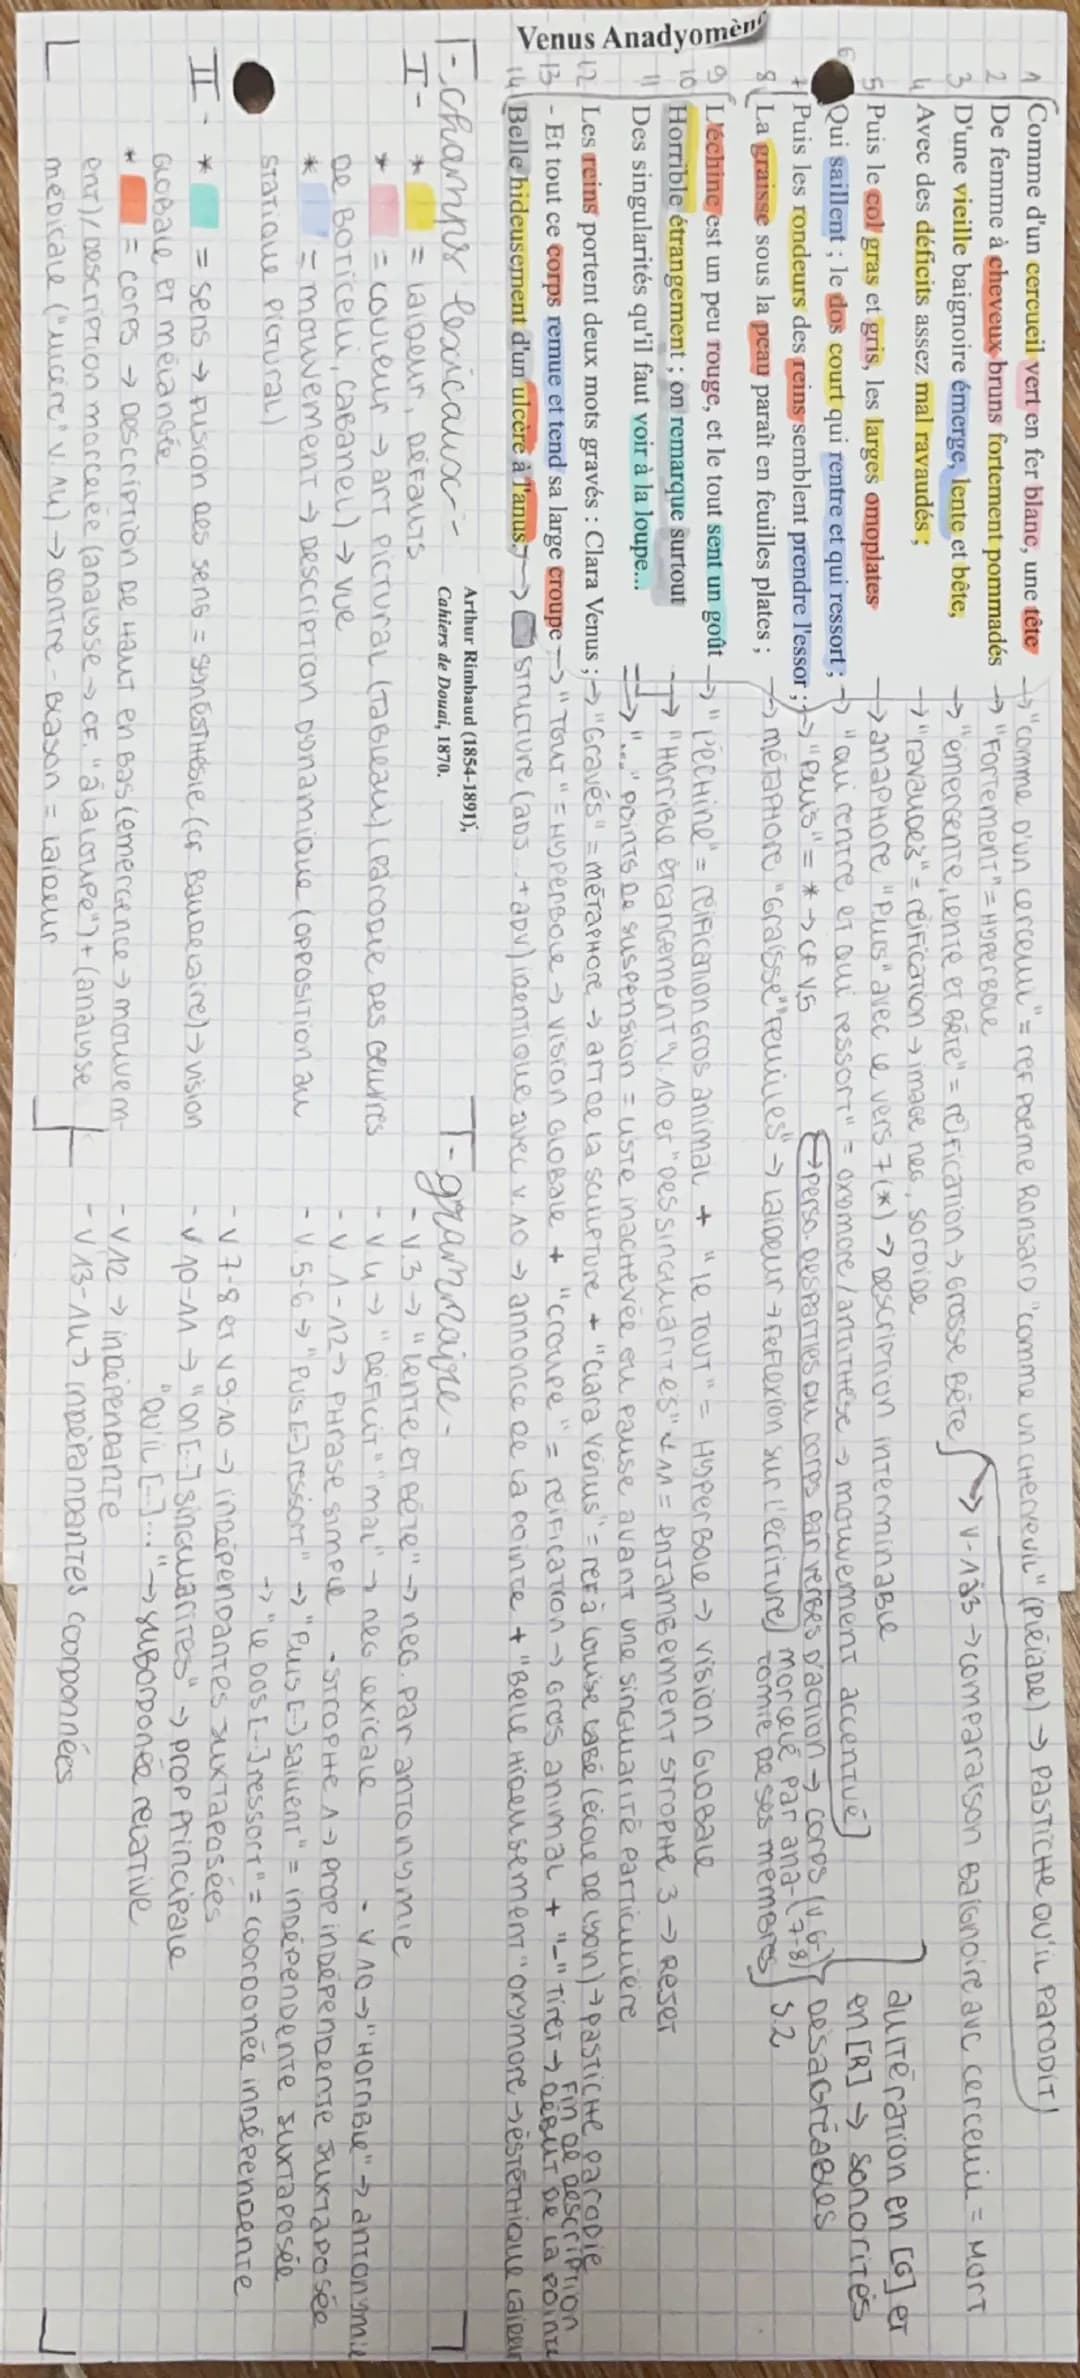 Venus Anadyomène
1 Comme d'un cercueil vert en fer blanc, une tête
2 De femme à cheveux bruns fortement pommadés
3 D'une vieille baignoire émerge, lente et bête,
4 Avec des déficits assez mal ravaudés ;
5 Puis le col gras et gris, les larges omoplates
6 Qui saillent ; le dos court qui rentre et qui ressort ;
7 Puis les rondeurs des reins semblent prendre l'essor ;
8 La graisse sous la peau paraît en feuilles plates ;
9 L'échine est un peu rouge, et le tout sent un goût
10 Horrible étrangement ; on remarque surtout
11 Des singularités qu'il faut voir à la loupe...
12 Les reins portent deux mots gravés : Clara Venus ;
13 - Et tout ce corps remue et tend sa large croupe
14 Belle hideusement d'un ulcère à l'anus.
Arthur Rimbaud (1854-1891),
Cahiers de Douai, 1870.
→ "comme d'un cercueil" = ref poème Ronsard "comme un chevreuil" (Pléiade) → pastiche qu'il parodit
→ "Fortement" = Hyperbole
→ "émergente, lente et bête" = réification → grosse bête → v-1à3 → comparaison baignoire avc cerceuil = mort
→ "ravaudés" = réification → image neg, sordide
→ anaphore "Puis" avec le vers 7(*) → description interminable
→ "qui rentre et qui ressort" = oxomore/antithèse → mouvement accentué
→ "Puis" = * → cf v.5
→ perso. des parties du corps par verbes d'action → corps (v.6-7-8)
→ métaphore "Graisse" "Feuilles" → laideur → reflexion sur l'écriture
morcelé par ana-
tomie de ses membres
S.2
allitération en [G] et
en [R] → sonorités
désagréables
→ "l'échine" = réification gros animal + "le tout" = Hyperbole → vision globale
→ "Horrible étrangement" v.10 et "des singularités" v.11 = enjambement strophe 3 → reset
→ "..." points de suspension = liste inachevée ou pause avant une singularité particulière
→ "Gravés" = métaphore → art de la sculpture + "Clara Vénus" = ref à Louise Labé (école de Lyon) → pastiche parodie
→ "Tout" = Hyperbole → vision globale + "croupe" = réification → gros animal + "-" tiret → fin de description début de la pointe
→ structure (adj. + adv) identique avec v.10 → annonce de la pointe + "Belle hideusement" oxymore → esthétique laideur
- champs lexicaux -
I- * = laideur, défauts
* = couleur → art pictural (tableau) (parodie des œuvres
de Boticelli, Cabanel) → vue
* = mouvement → description dynamique (opposition au
statique pictural)
II- * = sens → fusion des sens = synésthésie (cf Baudelaire) → vision
globale et mélangée
* = corps → description de haut en bas (émergence → mouvem-
ent) / description morcelée (analyse → cf. "à la loupe") + (analyse
médicale ("ulcère" v.14) → contre-blason = laideur
- grammaire -
- v.3 → "lente et bête" → neg. par antonymie
- v.4 → "déficit" "mal" → neg lexicale
- v.10 → "Horrible" → antonymie
- v 1-12 → phrase simple
- strophe 1 → prop indépendente juxtaposée
- v.5-6 → "Puis [...] ressort" → "Puis [...] saillent" = indépendente juxtaposée
→ "le dos [...] ressort" = coordonée indépendente
- v 7-8 et v 9-10 → indépendantes juxtaposées
- v 10-11 → "on [...] singularités" → prop principale
"qu'il [...]..." → subordonée relative
- v 12 → indépendante
- v 13-14 → indépendantes coordonnées